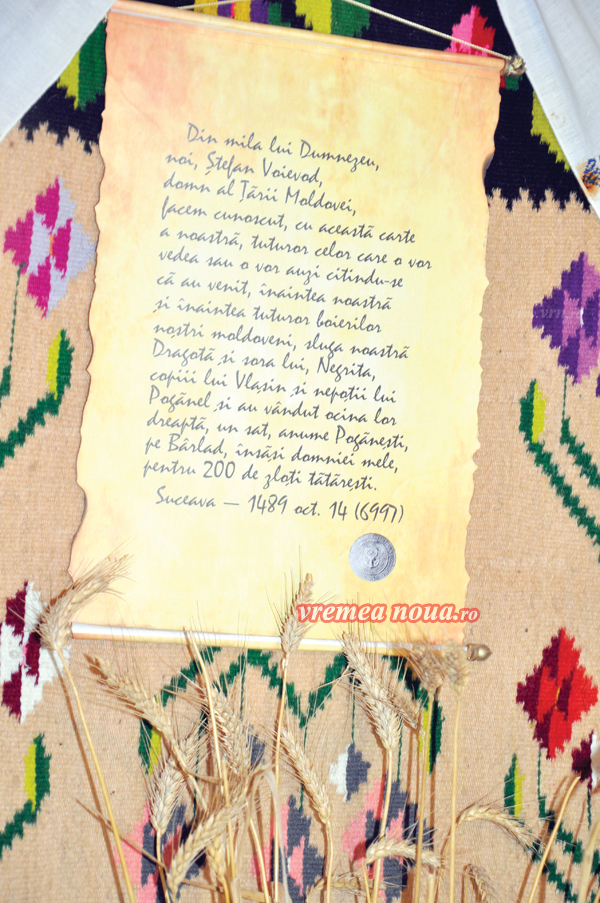 Din mila lui Dumnezeu,
noi, Ștefan Voievod,
domn al Țării Moldovei,
facem cunoscut, cu această carte
a noastră, tuturor celor care o vor
vedea sau o vor auzi citindu-se
că au venit, înaintea noastră
și înaintea tuturor boierilor
noștri moldoveni, sluga noastră
Dragotă și sora lui, Negrita,
copiii lui Vlașin și nepoții lui
Pogănel și au vândut ocina lor
dreaptă, un sat, anume Pogănești,
pe Bârlad, însăși domniei mele,
pentru 200 de zloți tătărești.
Suceava — 1489 oct. 14 (6997)
vremea noua.ro